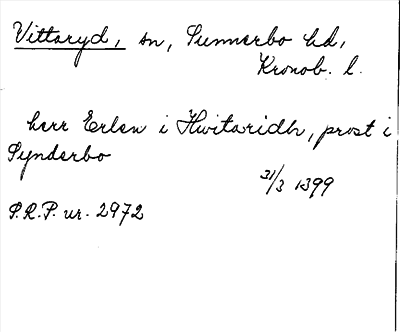 Vittaryd, sn, Sunnerbo hd,
Kronob. l.
herr Erlen i Hwitaridh, prost i
Synderbo
31/3 1399
P.R.P. ur. 2972